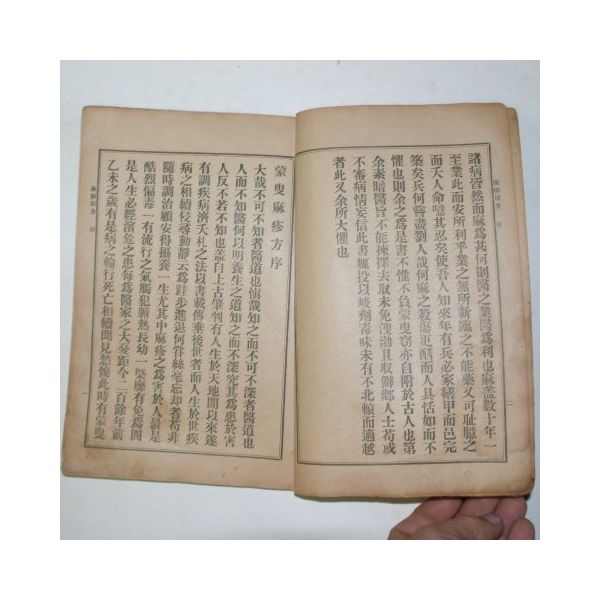 諸病皆然而麻爲甚何則醫之業醫爲利也麻盖數十年一
至業此而安所利乎業之無所斬臨之不能藥又可恥臆之
而天人命噫其忍矣使吾人知來年有兵必家繕甲而邑完
築矣兵何嘗盡劉人哉何麻之殺傷更酷而人具恬如而不
懼也則余之爲是書不惟不負蒙叟窃亦自附於古人也第
余素暗醫旨不能揀擇去取未免洩泐且取僻鄕人士苟或
不審病情妄信此書輒投以峻劑毒味未有不北轅而適越
者此又余所大懼也
蒙叟麻疹方序
大哉不可不知者醫道也愼哉知之而不可不深者醫道也
人而不知醫何以明養生之道知之而不深究其爲患於害
人反不若不知也盖自上古肇判有人生於天地間以來遂
有調疾病濟夭札之法以書載傳垂後世者而人生於世疾
病之相續侵尋動靜云爲跬步進退何嘗絲毫忘却者苟非
隨時調治顧安得攝養一生尤其中麻疹之爲害於人最是
酷烈偏毒一有流行之氣觸犯腑熱長幼一
是人生必經濱危之患每爲醫家之大憂距今二百餘年前
乙未之歲有是病之輪行死亡相續聞見愁慘此時有蒙叟